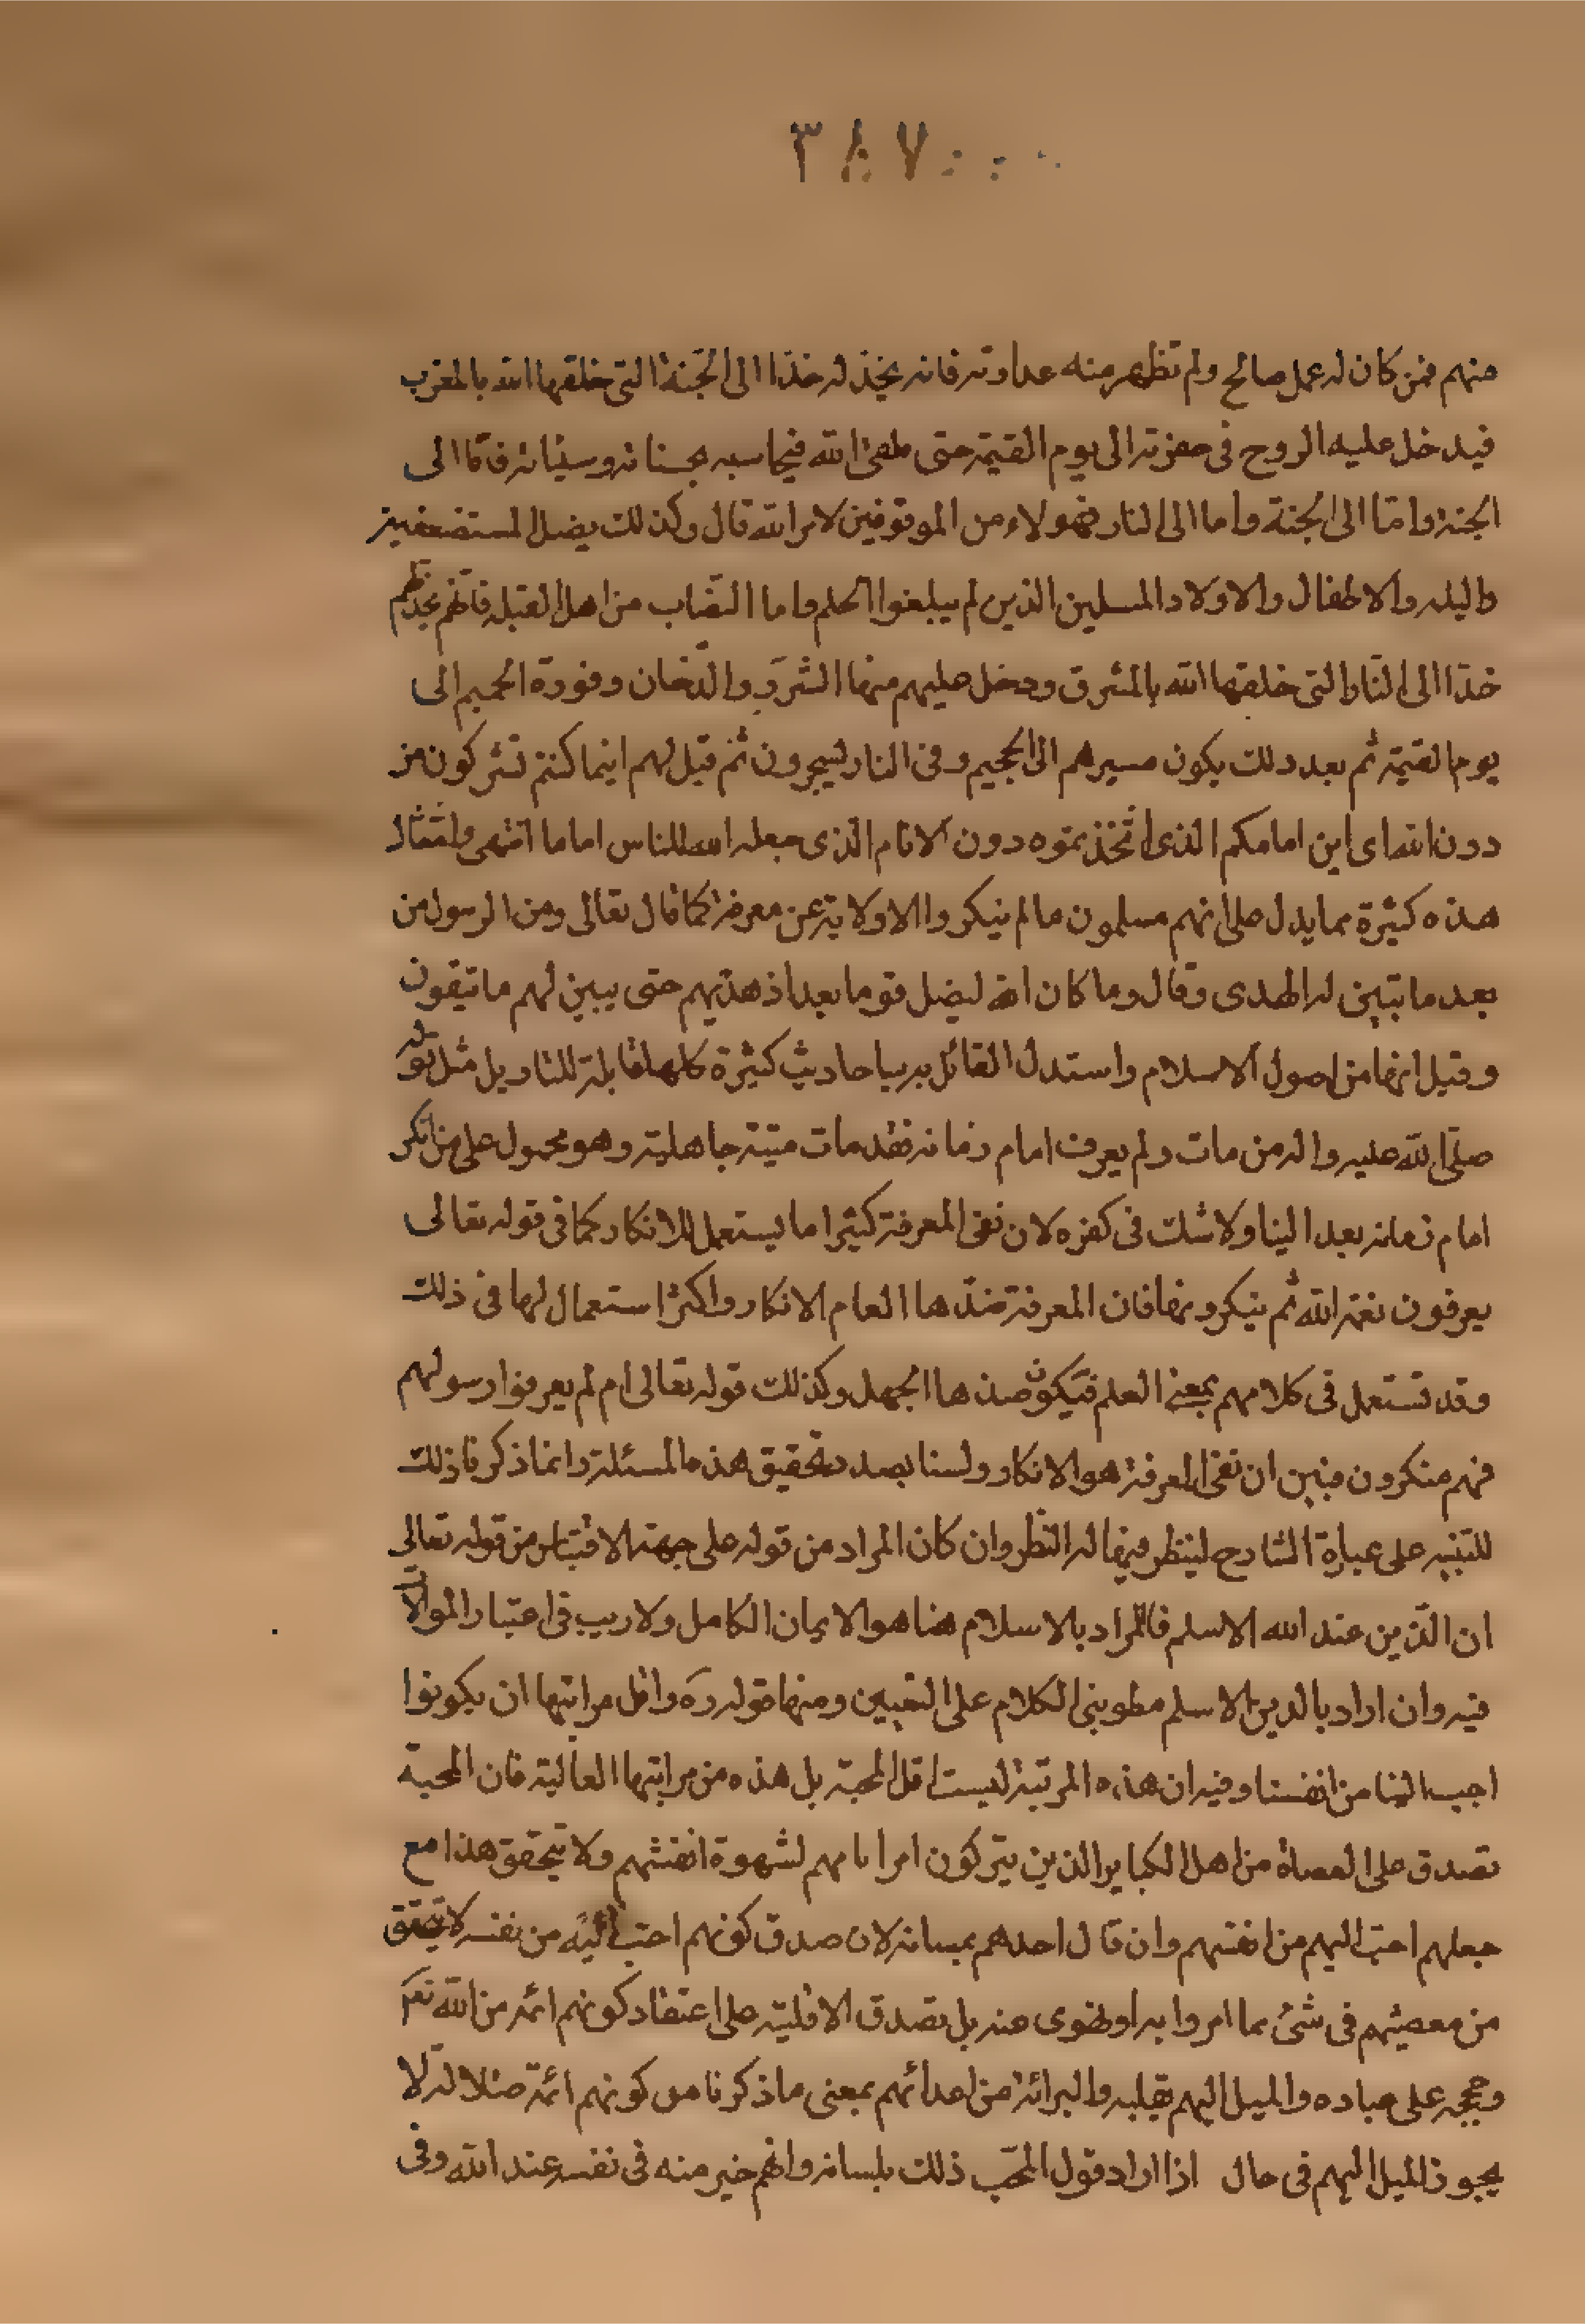 ٣٨٧
منهم فمن كان له عمل صالح ولم تظهر منه عداوته فانه يخذ له خذا الى الجنة التى خلقها الله بالمغرب
فيدخل عليه الروح فى حفرته الى يوم القيمة حتى يلقى الله فيحاسبه بحسناته وسيئاته فاما الى
الجنة واما الى الجنة واما الى النار فهولاء من الموقوفين لامر الله قال وكذلك يفعل المستضعفين
والبله والاطفال والاولاد المسلمين الذين لم يبلغوا الحلم واما النصاب من اهل القبلة فانهم يخذلهم
خذا الى النار التى خلقها الله بالمشرق ودخل عليهم منها الشرر والدخان وفورة الحميم الى
يوم القيمة ثم بعد ذلك يكون مسيرهم الى الجحيم وفى النار يسجرون ثم قيل لهم اينما كنتم تشركون من
دون الله اى اين امامكم الذى اتخذتموه دون الامام الذى جعله الله للناس اماما انتهى وامثال
هذه كثيرة مما يدل على انهم مسلمون ما لم ينكروا الاولاية عن معرفة كما قال تعالى ومن الرسول من
بعد ما تبين له الهدى وقال وما كان الله ليضل قوما بعد اذ هديهم حتى يبين لهم ما تيقون
وقيل انها من اصول الاسلام واستدل القائل به باحاديث كثيرة كلها قابلة للتاويل مثل قوله
صلى الله عليه واله من مات ولم يعرف امام زمانه فقد مات ميتة جاهلية وهو محمول على من انكر
امام زمانه بعد البنا ولا شك فى كفره لان نفى المعرفة كثيرا ما يستعمل للانكار كما فى قوله تعالى
يعرفون نعمة الله ثم ينكرونها فان المعرفة ضدها العام الانكار واكثر استعمال لها فى ذلك
وقد تستعمل فى كلامهم بمعنى العلم فيكون ضدها الجهل وكذلك قوله تعالى ام لم يعرفوا رسولهم
فهم منكرون فبين ان نفى المعرفة هو الانكار ولسنا بصدد تحقيق هذه المسئلة وانما ذكرنا ذلك
للتنبيه على عبارة الشارح لينظر فيها له النظر وان كان المراد من قوله على جهة الاقتباس من قوله تعالى
ان الدين عند الله الاسلم فالمراد بالاسلام هنا هو الايمان الكامل ولا ريب فى اعتبار الموالات
فيه وان اراد بالدين الاسلم مطوبنى الكلام على التعيين ومنها قوله ره واقل مراتبها ان يكونوا
احب الينا من انفسنا وفيه ان هذه المرتبة ليست اقل المحبة بل هذه من مراتبها العالية فان المحبة
تصدق على العصاة من اهل الكباير الذين يتركون امرامامهم لشهوة انفسهم ولا يتحقق هذا مع
جعلهم احب اليهم من انفسهم وان قال احدهم بلسانه لان صدق كونهم احب اليه من نفسه لا يتحقق
من معصيتهم فى شئ مما امروا به او نهوى عنه بل تصدق الاقلية على اعتقاد كونهم ائمة من الله تعم
وحججه على عباده والميل اليهم بقلبه والبرائة من اعدائهم بمعنى ما ذكرنا من كونهم ائمة ضلالة لا
يجوز الميل اليهم فى حال اذا اراد قول المحب ذلك بلسانه وانهم خير منه فى نفسه عند الله وفى